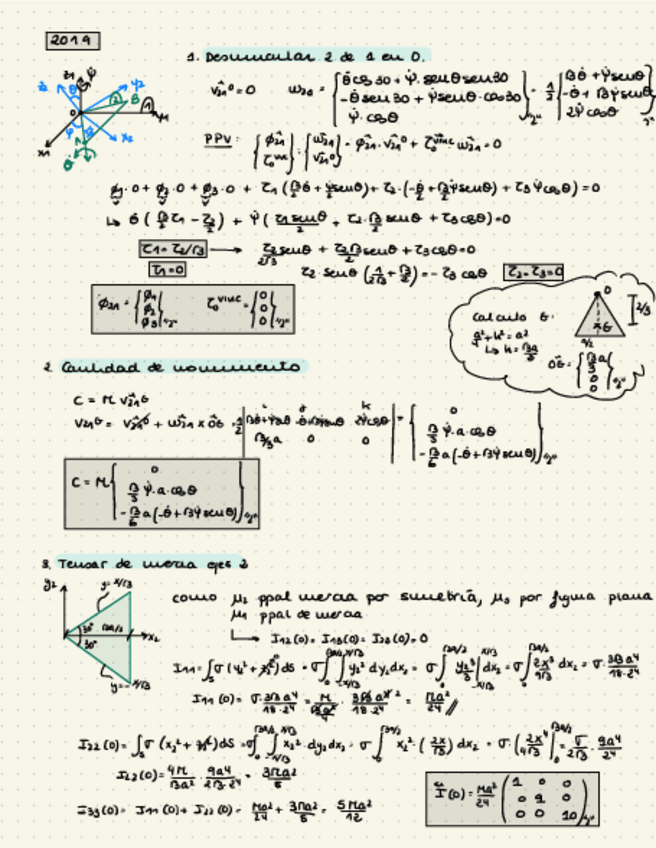 2019
1. Desvincular 2 de 1 en O.
z1 z2 y2 B y1 x1 x2 O
v21^O = 0 ω20 = { θ̇ cos30 + ψ̇. senθ sen30 ; -θ̇ sen30 + ψ̇ senθ·cos30 ; ψ̇. cosθ }"2" = 1/2 { √3θ̇ + ψ̇ senθ ; -θ̇ + √3ψ̇ senθ ; 2ψ̇ cosθ }"2"
PPV: { φ21 ; τ0^vinc } · { ω21 ; v21^0 } = φ21 · v21^0 + τ0^vinc · ω21 = 0
φ1·0 + φ2·0 + φ3·0 + τ1 (√3/2 θ̇ + ψ̇/2 senθ) + τ2·(-θ̇/2 + √3/2 ψ̇ senθ) + τ3 ψ̇ cosθ) = 0
↳ θ̇ ( √3/2 τ1 - τ2/2 ) + ψ̇ ( τ1 senθ/2 + τ2·√3/2 senθ + τ3 cosθ) = 0
τ1 = τ2/√3 → τ2/2√3 senθ + τ2√3/2 senθ + τ3 cosθ = 0
τ1 = 0 τ2· senθ (1/2√3 + √3/2) = - τ3 cosθ τ2 = τ3 = 0
φ21 = { φ1 ; φ2 ; φ3 }"2" τ0^vinc = { 0 ; 0 ; 0 }"2"
Calculo G: O G 2/3 a/2
a²/4 + h² = a²
↳ h = √3a/2 OG = { √3a/3 ; 0 ; 0 }"2"
2. Cantidad de movimiento
C = M v21^G
v21^G = v21^O + ω21 × OG = 1/2 | i j k ; √3θ̇ + ψ̇ senθ -θ̇ + √3ψ̇ senθ 2ψ̇ cosθ ; √3/3 a 0 0 | = { 0 ; √3/3 ψ̇·a·cosθ ; -√3/6 a (-θ̇ + √3ψ̇ senθ) }"2"
C = M { 0 ; √3/3 ψ̇·a·cosθ ; -√3/6 a (-θ̇ + √3ψ̇ senθ) }"2"
3. Tensor de inercia ejes 2
y2 y = x/√3 30° √3a/2 x2 30° y = -x/√3
como μ2 ppal inercia por simetría, μ3 por figura plana
μ1 ppal de inercia
↳ I12(0) = I13(0) = I23(0) = 0
I11 = ∫s σ (y2² + z2²) dS = σ ∫0^√3a/2 ∫-x/√3^x/√3 y2² dy2 dx2 = σ ∫0^√3a/2 y2³/3 |-x/√3^x/√3 dx2 = σ ∫0^√3a/2 2x³/9√3 dx2 = σ · 3√3 a⁴/18·2⁴
I11 (0) = σ· 3√3 a⁴/18·2⁴ = M/√3a² · 3√3 a⁴/18·2⁴ = Ma²/24
I22(0) = ∫s σ (x2² + z2²) dS = σ ∫0^√3a/2 ∫-x/√3^x/√3 x2² · dy2 dx2 = σ ∫0^√3a/2 x2² · (2x/√3) dx2 = σ · (2x⁴/4√3 |0^√3a/2 = σ/2√3 · 9a⁴/2⁴
I22(0) = 4M/√3a² · 9a⁴/2√3·2⁴ = 3Ma²/8
I33(0) = I11(0) + I22(0) = Ma²/24 + 3Ma²/8 = 5Ma²/12
I (0) = Ma²/24 ( 1 0 0 ; 0 9 0 ; 0 0 10 )"2"